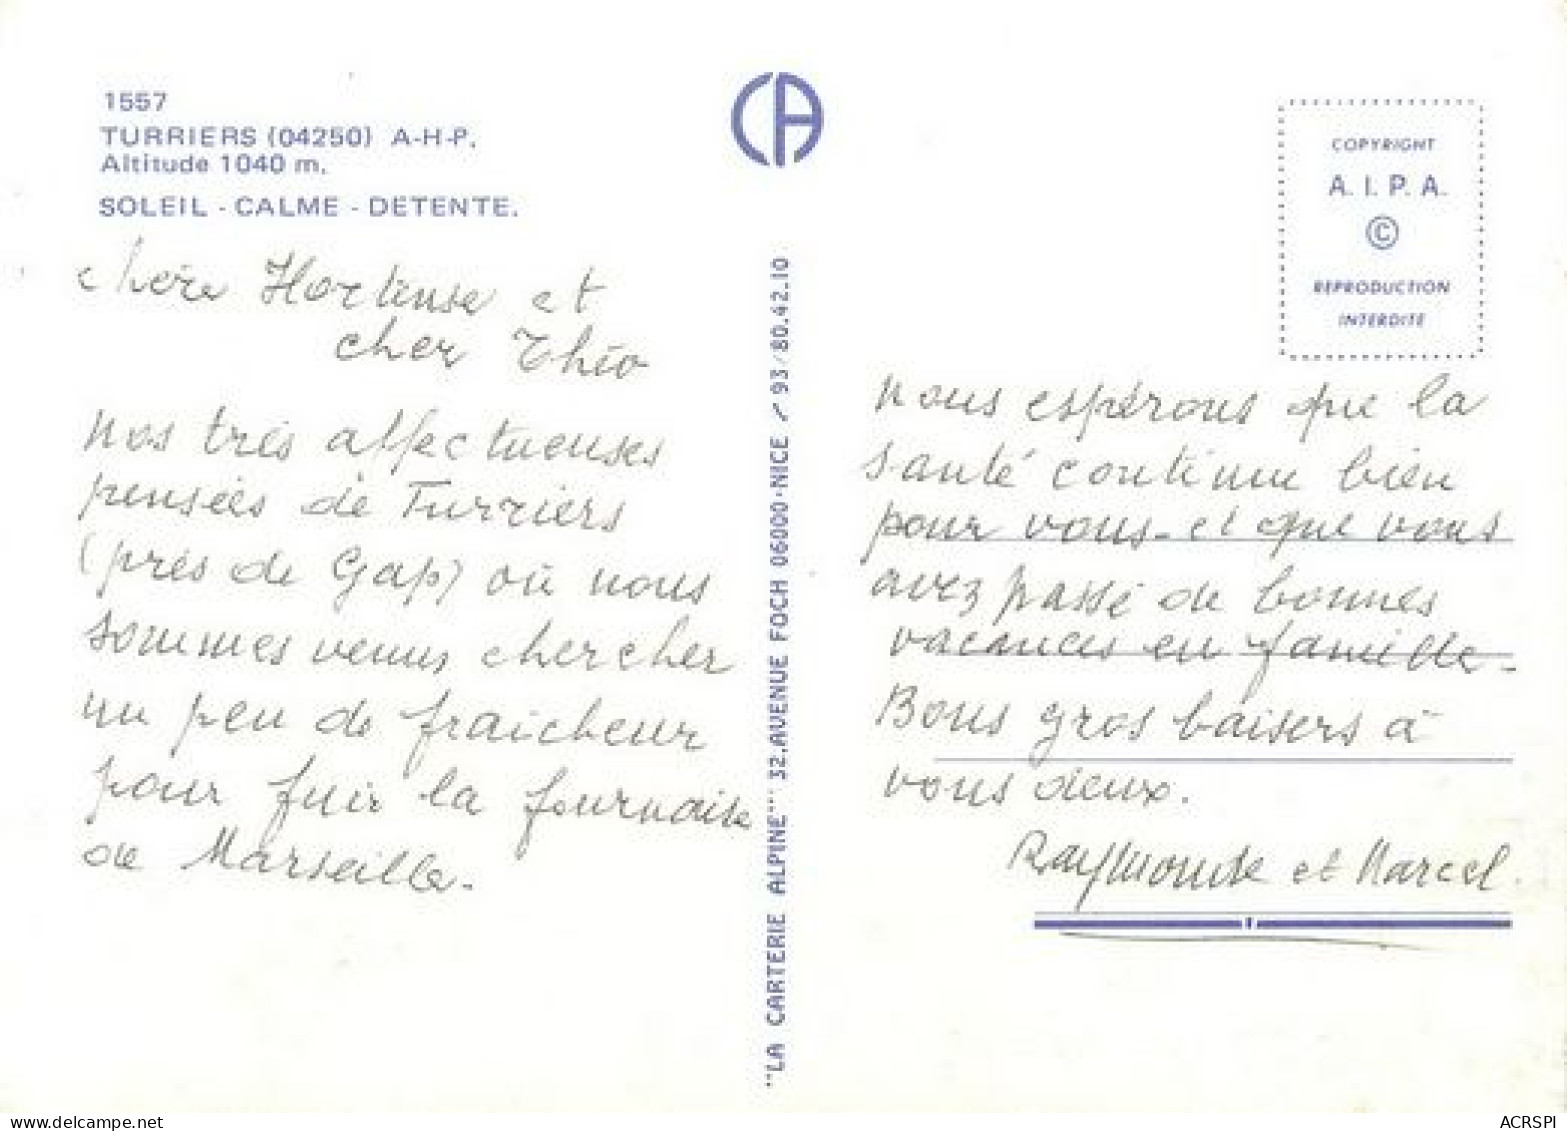 1557
TURRIERS (04250) A-H-P.
Altitude 1040 m.
SOLEIL - CALME - DETENTE.
chère Hortense et
cher Théo
Nos très affectueuses
pensées de Turriers
(près de Gap) où nous
sommes venus chercher
un peu de fraicheur
pour fuir la fournaise
de Marseille.
CA
"LA CARTERIE ALPINE" 32, AVENUE FOCH 06000-NICE / 93/80.42.10
COPYRIGHT
A. I. P. A.
©
REPRODUCTION
INTERDITE
nous espérons que la
santé continue bien
pour vous - et que vous
avez passé de bonnes
vacances en famille -
Bons gros baisers à
vous deux.
Raymonde et Marcel.
delcampe.net
ACRSPI